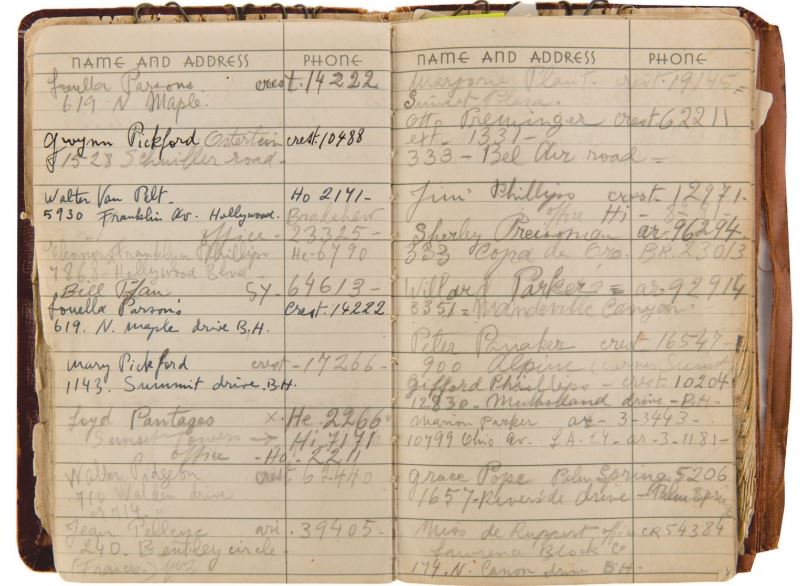 NAME AND ADDRESS PHONE
Louella Parsons. crest. 14222
619 N Maple.
Gwynn Pickford Ostertein crest. 10488
1528 road -
Walter Van Pelt - Ho 2171 -
5930 Franklin Av. Hollywood. Bradshaw
office - 23325 -
Franklyn Phillips He - 6790
7868 - Hollywood Blvd -
Bill SY. 64613 -
Louella Parson's Crest. 14222
619. N. maple drive B.H.
Mary Pickford crest - 17266 -
1143. Summit drive. B.H.
Loyd Pantages x. He. 2266
Sunset Towers → Hi. 7171
office - Ho - 2211
Walter Pidgeon crest 62440
710 Walden drive
or 714. "
Jean ari. 39405 -
240. Bentley circle -
(France.)
NAME AND ADDRESS PHONE
Marjorie Plant. crest. 19145 =
Sunset Plaza.
Otto Preminger crest 62211
ext. 1331 -
333 - Bel Air road =
Jim Phillips crest. 12971 -
office Hi -
ar. 96294
333 Copa de Oro. BR. 23013
Willard Parker's = ar. 92914
3351 = Mandeville Canyon.
crest 16547 -
900 Alpine (corner Sunset
Gifford Phillips - crest 10204
12830 - Mulholland drive - B.H.
Marion Parker ar - 3-3443 -
10799 Ohio Av. LA. 24 - ar - 3 - 1181 -
Grace Pope Palm Springs 5206
1657 - Riverside drive - Palm Spring
Miss de Ruppert office CR 54384
Lawrence Block Co
174. N. Canon drive B.H.